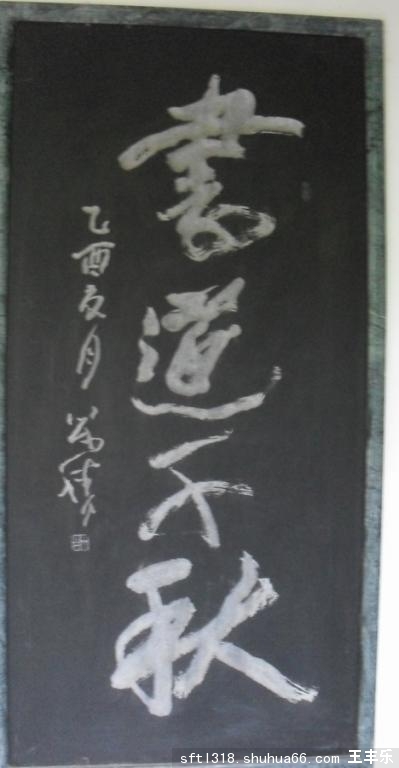 書道千秋
乙酉夏月
sftl318.shuhua66.com 王丰乐